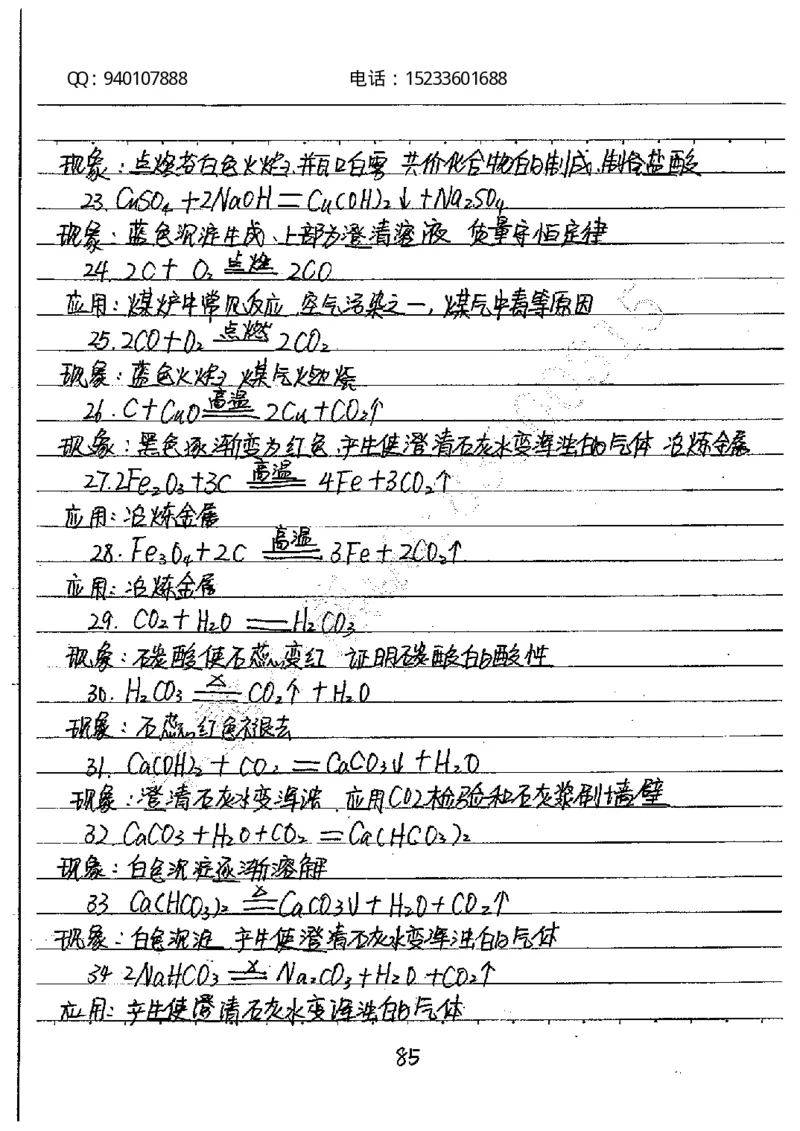 QQ：940107888 电话：15233601688
现象：点燃苍白色火焰,并瓶口白雾 共价化合物的制成,制备盐酸
23. CuSO₄+2NaOH＝Cu(OH)₂↓+Na₂SO₄
现象：蓝色沉淀生成、上部为澄清溶液 质量守恒定律
24. 2C+O₂ 点燃 2CO
应用：煤炉中常见反应、空气污染之一,煤气中毒等原因
25. 2CO+O₂ 点燃 2CO₂
现象：蓝色火焰 煤气燃烧
26. C+CuO 高温 2Cu+CO₂↑
现象：黑色逐渐变为红色、产生使澄清石灰水变浑浊的气体 冶炼金属
27. 2Fe₂O₃+3C 高温 4Fe+3CO₂↑
应用：冶炼金属
28. Fe₃O₄+2C 高温 3Fe+2CO₂↑
应用：冶炼金属
29. CO₂+H₂O＝H₂CO₃
现象：碳酸使石蕊变红 证明碳酸的酸性
30. H₂CO₃ △ CO₂↑+H₂O
现象：石蕊红色褪去
31. Ca(OH)₂+CO₂＝CaCO₃↓+H₂O
现象：澄清石灰水变浑浊 应用CO2检验和石灰浆刷墙壁
32 CaCO₃+H₂O+CO₂＝Ca(HCO₃)₂
现象：白色沉淀逐渐溶解
33 Ca(HCO₃)₂ △ CaCO₃↓+H₂O+CO₂↑
现象：白色沉淀 产生使澄清石灰水变浑浊的气体
34 2NaHCO₃ △ Na₂CO₃+H₂O+CO₂↑
应用：产生使澄清石灰水变浑浊的气体
85